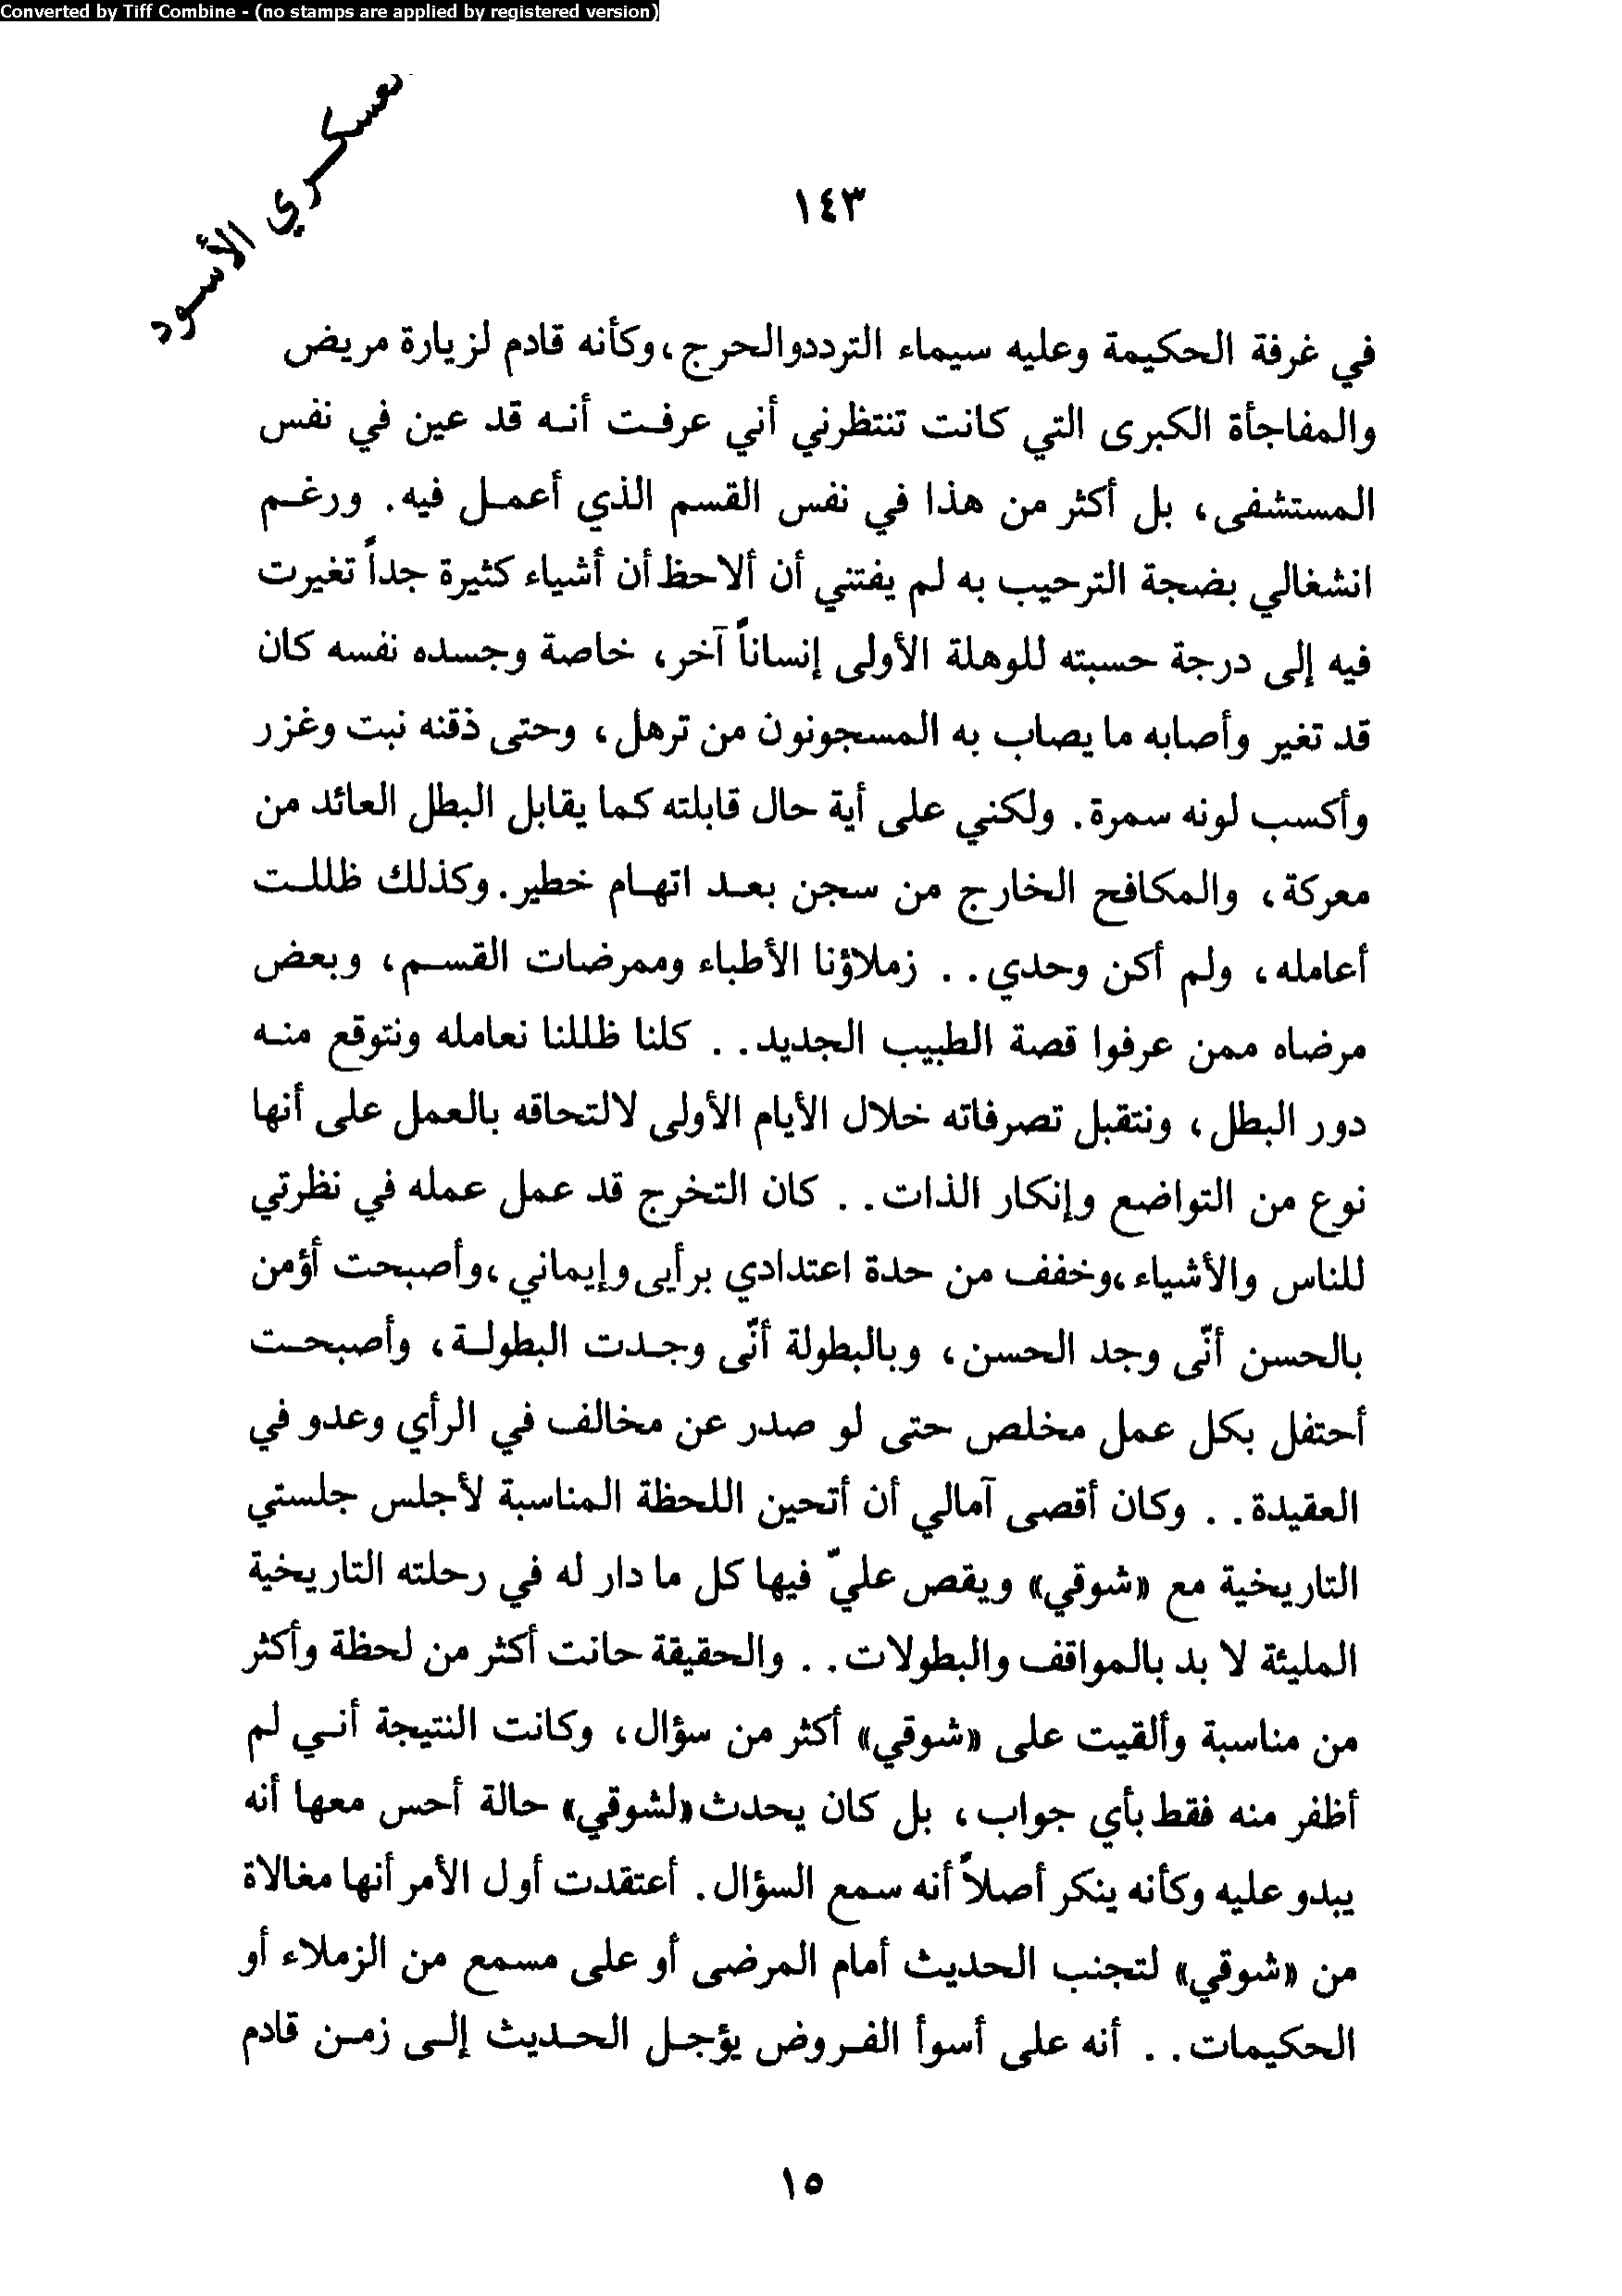 Converted by Tiff Combine - (no stamps are applied by registered version)
لعسكري الأسود
١٤٣
في غرفة الحكيمة وعليه سيماء الترددوالحرج ،وكأنه قادم لزيارة مريض
والمفاجأة الكبرى التي كانت تنتظرني أني عرفت أنه قد عين في نفس
المستشفى، بل أكثر من هذا في نفس القسم الذي أعمل فيه. ورغم
انشغالي بضجة الترحيب به لم يفتني أن ألاحظ أن أشياء كثيرة جداً تغيرت
فيه إلى درجة حسبته للوهلة الأولى إنساناً آخر، خاصة وجسده نفسه كان
قد تغير وأصابه ما يصاب به المسجونون من ترهل، وحتى ذقنه نبت وغزر
وأكسب لونه سمرة. ولكني على أية حال قابلته كما يقابل البطل العائد من
معركة، والمكافح الخارج من سجن بعد اتهام خطير. وكذلك ظللت
أعامله، ولم أكن وحدي.. زملاؤنا الأطباء وممرضات القسم، وبعض
مرضاه ممن عرفوا قصة الطبيب الجديد.. كلنا ظللنا نعامله ونتوقع منه
دور البطل، ونتقبل تصرفاته خلال الأيام الأولى لالتحاقه بالعمل على أنها
نوع من التواضع وإنكار الذات.. كان التخرج قد عمل عمله في نظرتي
للناس والأشياء ،وخفف من حدة اعتدادي برأيى وإيماني ،وأصبحت أؤمن
بالحسن أنّى وجد الحسن، وبالبطولة أنّى وجدت البطولة، وأصبحت
أحتفل بكل عمل مخلص حتى لو صدر عن مخالف في الرأي وعدو في
العقيدة.. وكان أقصى آمالي أن أتحين اللحظة المناسبة لأجلس جلستي
التاريخية مع «شوقي» ويقص عليّ فيها كل ما دار له في رحلته التاريخية
المليئة لا بد بالمواقف والبطولات.. والحقيقة حانت أكثر من لحظة وأكثر
من مناسبة وألقيت على «شوقي» أكثر من سؤال، وكانت النتيجة أني لم
أظفر منه فقط بأي جواب، بل كان يحدث «لشوقي» حالة أحس معها أنه
يبدو عليه وكأنه ينكر أصلاً أنه سمع السؤال. أعتقدت أول الأمر أنها مغالاة
من «شوقي» لتجنب الحديث أمام المرضى أو على مسمع من الزملاء أو
الحكيمات.. أنه على أسوأ الفروض يؤجل الحديث إلى زمن قادم
١٥